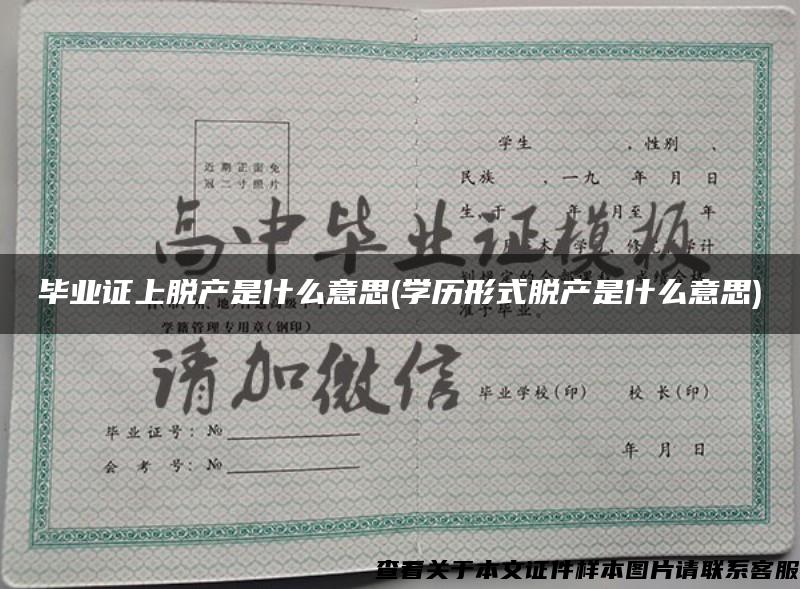 近期正面免
冠二寸照片
学籍管理专用章(钢印)
毕业证号:№
会考号:№
学生 ,性别 、
民族 ,一九 年 月 日
生,于 年 月至 年
准予毕业。
毕业学校(印) 校长(印)
年 月 日
高中毕业证模板
请加微信
毕业证上脱产是什么意思(学历形式脱产是什么意思)
查看关于本文证件样本图片请联系客服